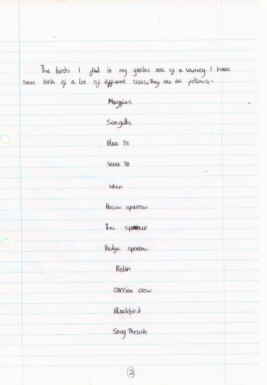 The birds I find in my garden are of a variety I have
seen birds of a lot of different sizes, they are as follows:-
Magpies
Seagulls
Blue Tit
Wren
House sparrow
Tree sparrow
Hedge sparrow
Robin
Carrion crow
Blackbird
Song Thrush
2